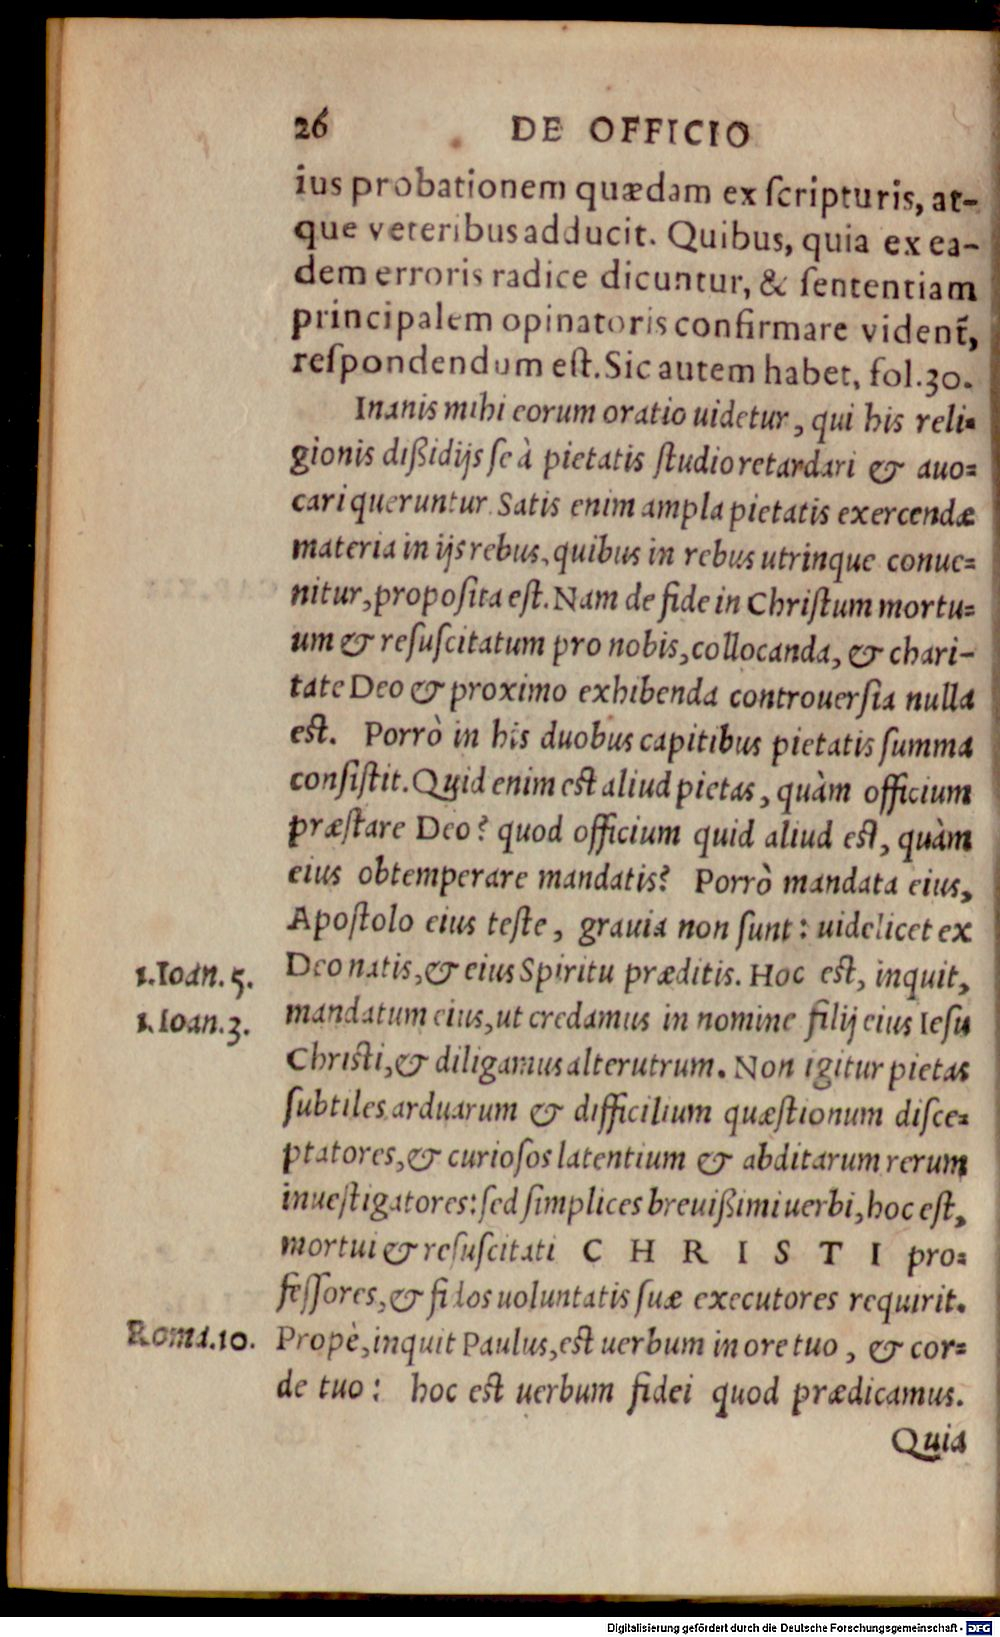 26 DE OFFICIO
ius probationem quædam ex ſcripturis, at-
que veteribus adducit. Quibus, quia ex ea-
dem erroris radice dicuntur, & ſententiam
principalem opinatoris confirmare vident̃,
reſpondendum eſt. Sic autem habet, fol.30.
Inanis mihi eorum oratio uidetur, qui his reli-
gionis dißidijs ſe à pietatis ſtudio retardari & auo-
cari queruntur. Satis enim ampla pietatis exercendæ
materia in ijs rebus, quibus in rebus utrinque conue-
nitur, propoſita eſt. Nam de fide in Chriſtum mortu-
um & reſuſcitatum pro nobis, collocanda, & chari-
tate Deo & proximo exhibenda controuerſia nulla
eſt. Porrò in his duobus capitibus pietatis ſumma
conſiſtit. Quid enim eſt aliud pietas, quàm officium
præſtare Deo? quod officium quid aliud eſt, quàm
eius obtemperare mandatis? Porrò mandata eius,
Apoſtolo eius teſte, grauia non ſunt: uidelicet ex
1.Ioan. 5. Deo natis, & eius Spiritu præditis. Hoc eſt, inquit,
1.Ioan.3. mandatum eius, ut credamus in nomine filij eius Ieſu
Chriſti, & diligamus alterutrum. Non igitur pietas
ſubtiles arduarum & difficilium quæſtionum diſce-
ptatores, & curioſos latentium & abditarum rerum
inueſtigatores: ſed ſimplices breuißimi uerbi, hoc eſt,
mortui & reſuſcitati C H R I S T I pro-
feſſores, & fidos uoluntatis ſuæ executores requirit.
Roma.10. Propè, inquit Paulus, eſt uerbum in ore tuo, & cor-
de tuo: hoc eſt uerbum fidei quod prædicamus.
Quia
Digitalisierung gefördert durch die Deutsche Forschungsgemeinschaft - DFG